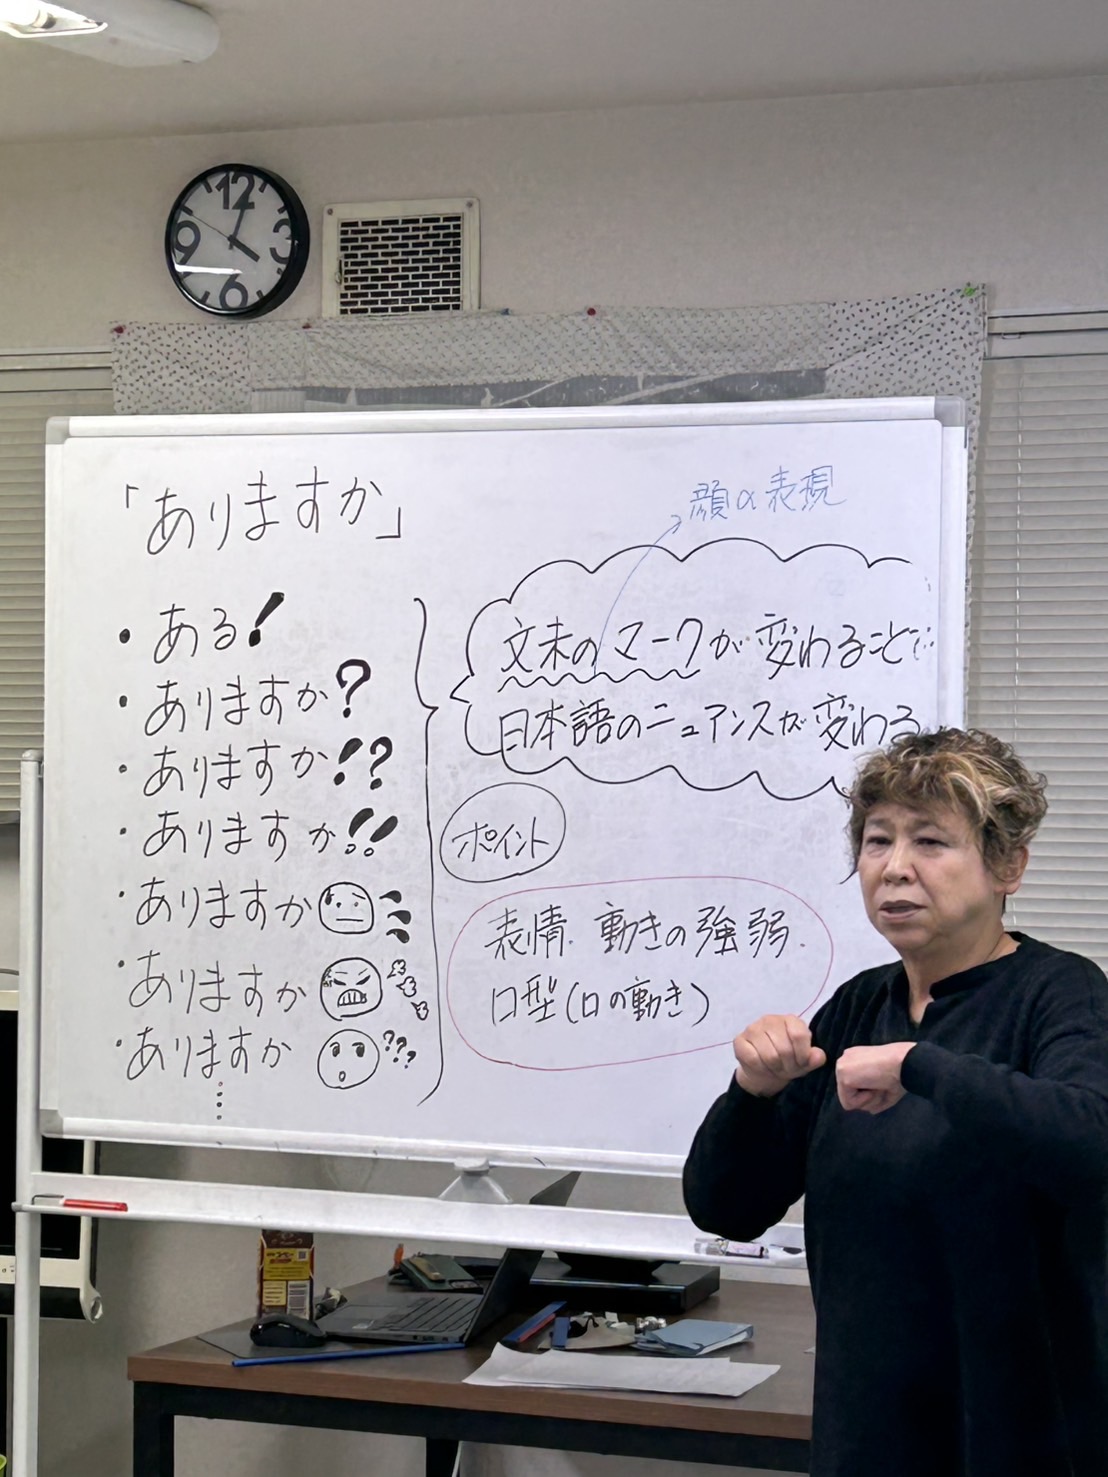 12
3
6
9
「ありますか」
・ある!
・ありますか?
・ありますか!?
・ありますか!!
・ありますか
・ありますか
・ありますか ???
顔の表現
文末のマークが変わることで
日本語のニュアンスが変わる
ポイント
表情.動きの強弱.
口型(口の動き)